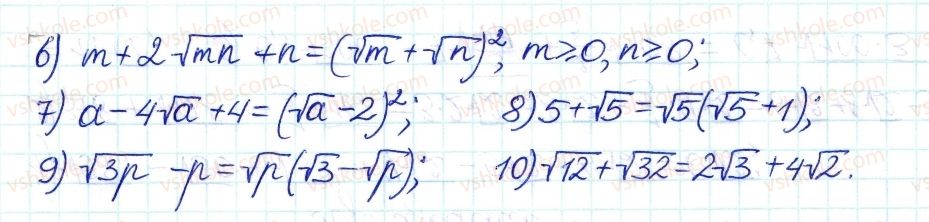 6) m + 2√mn + n = (√m + √n)², m ≥ 0, n ≥ 0;
7) a - 4√a + 4 = (√a - 2)²; 8) 5 + √5 = √5(√5 + 1);
9) √3p - p = √p(√3 - √p); 10) √12 + √32 = 2√3 + 4√2.